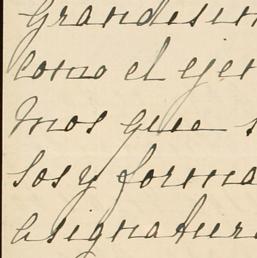 Grandisim
como el ejer
mos que s
los y forma
asignatura